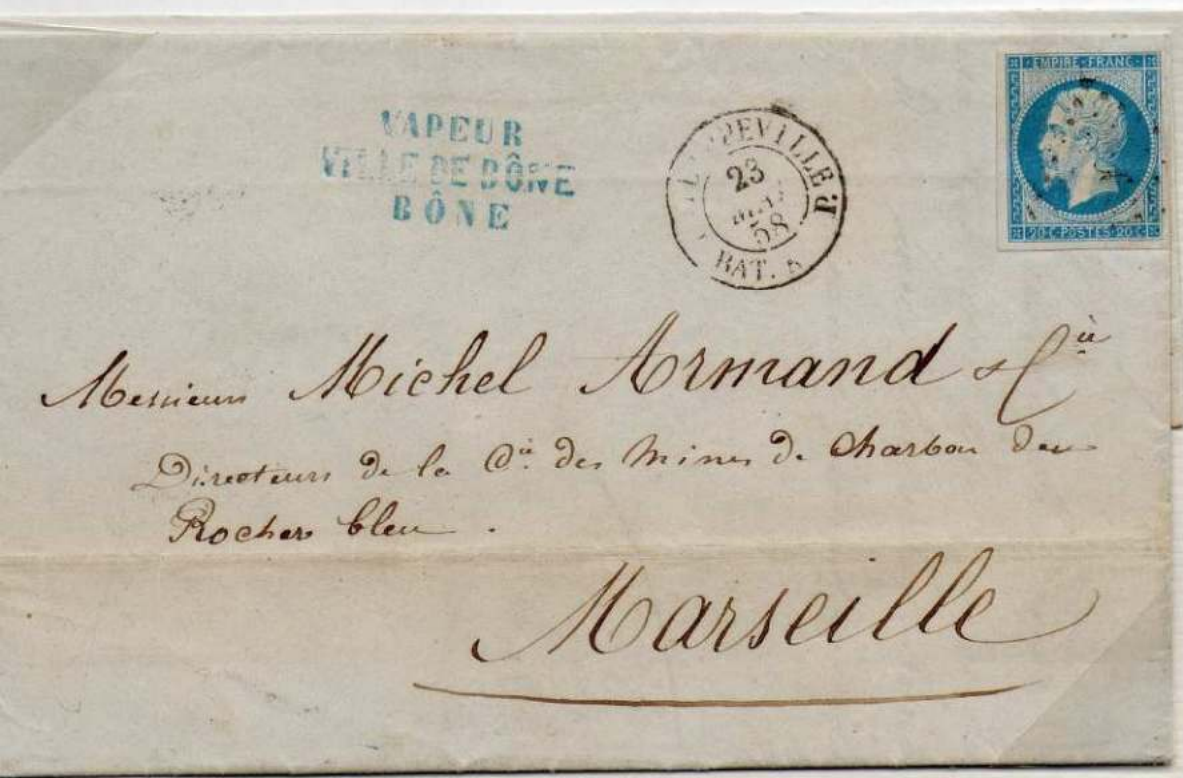 VAPEUR
VILLE DE BÔNE
BÔNE
PHILIPPEVILLE
23
58
BAT. A
EMPIRE-FRANC-
20-C-POSTES-20-C
Messieurs Michel Armand & Cie
Directeurs de la Cie des Mines de Charbon du
Rocher bleu .
Marseille